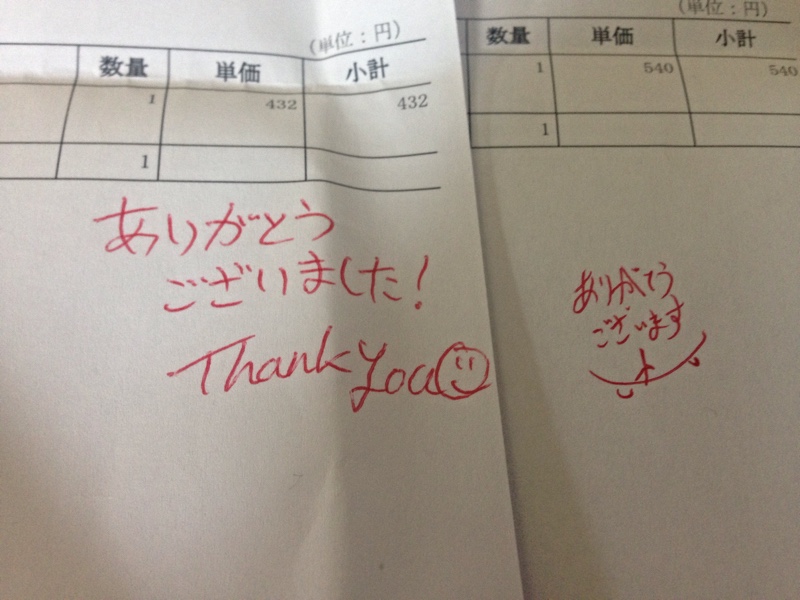 (単位：円)
数量 単価 小計
1 432 432
1
ありがとう
ございました!
Thank You
(単位：円)
数量 単価 小計
1 540 540
1
ありがとう
ございます